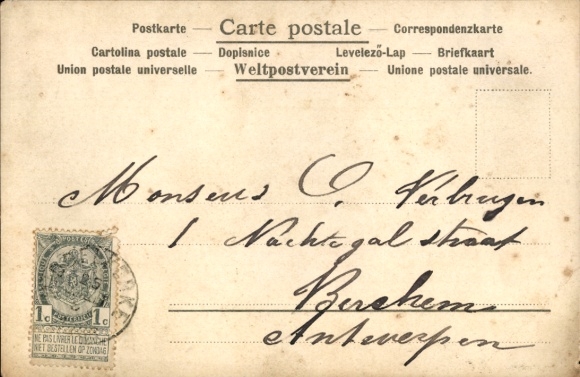 Postkarte — Carte postale — Correspondenzkarte
Cartolina postale — Dopisnice Levelező-Lap — Briefkaart
Union postale universelle — Weltpostverein — Unione postale universale.
Monseus C. Verbrugen
1 Nachtegal straat
Berchem
Antwerpen
1c 1c
NE PAS LIVRER LE DIMANCHE
NIET BESTELLEN OP ZONDAG